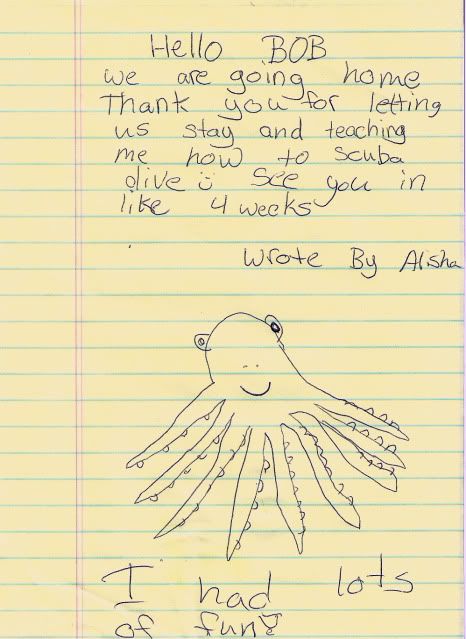 Hello BOB
we are going home
Thank you for letting
us stay and teaching
me how to scuba
dive ü See you in
like 4 weeks
Wrote By Alisha
I had lots
of fun!